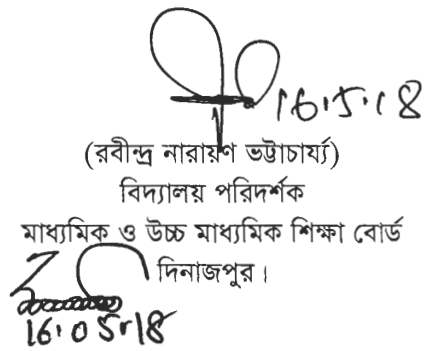 16.5.18
(রবীন্দ্র নারায়ণ ভট্টাচার্য্য)
বিদ্যালয় পরিদর্শক
মাধ্যমিক ও উচ্চ মাধ্যমিক শিক্ষা বোর্ড
দিনাজপুর।
16.05.18